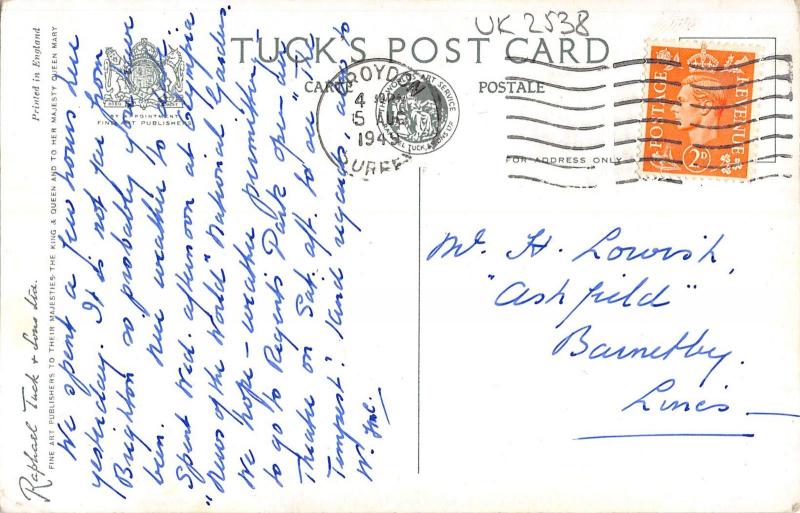 UK 2538
TUCK'S POST CARD
CARTE POSTALE
BY APPOINTMENT
FINE ART PUBLISHERS
CROYDON
4
5 AUG
1949
SURREY
FOR ADDRESS ONLY
POSTAGE REVENUE
2D
Printed in England
Raphael Tuck & Sons Ltd.
FINE ART PUBLISHERS TO THEIR MAJESTIES THE KING & QUEEN AND TO HER MAJESTY QUEEN MARY
We spent a few hours here
yesterday. It is not far from
Brighton so probably you have
been. Nice weather to date.
Spent Wed. afternoon at Olympia
"News of the World" National Gardens.
We hope - weather permitting,
to go to Regents Park open-air
Theatre on Sat. aft. to see "The
Tempest". Kind regards, also to
Mr. H. Lowish,
"Ashfield"
Barnetby.
Lincs